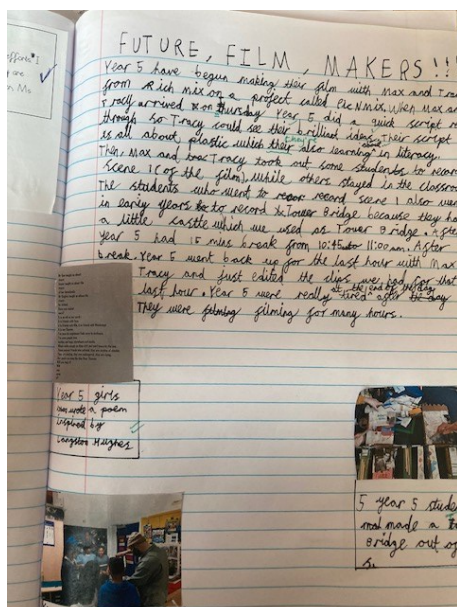 efforts"I
are
on Ms
FUTURE, FILM, MAKERS!!!
Year 5 have begun making their film with Max and Trac
from Rich mix on a project called PicNMix. When Max an
Tracy arrived on thursday Year 5 did a quick script r
through so Tracy could see their brilliant ideas. Their script
is all about plastic which they're also learning in literacy.
Then, Max and Tracy took out some students to recor
scene 1 (of the film), while others stayed in the classro
The students who went to record scene 1 also wen
in early years to record Tower Bridge because they ha
a little castle which we used as Tower Bridge. After
Year 5 had 15 mins break from 10:45 to 11:00am. After
break. Year 5 went back up for the last hour with Max
Tracy and just edited the clips we had for that
last hour. Year 5 were really tired at the end of the day
They were filming for many hours.
Year 5 girls
wrote a poem
inspired by
Langston Hughes
5 year 5 stude
made a
Bridge out o